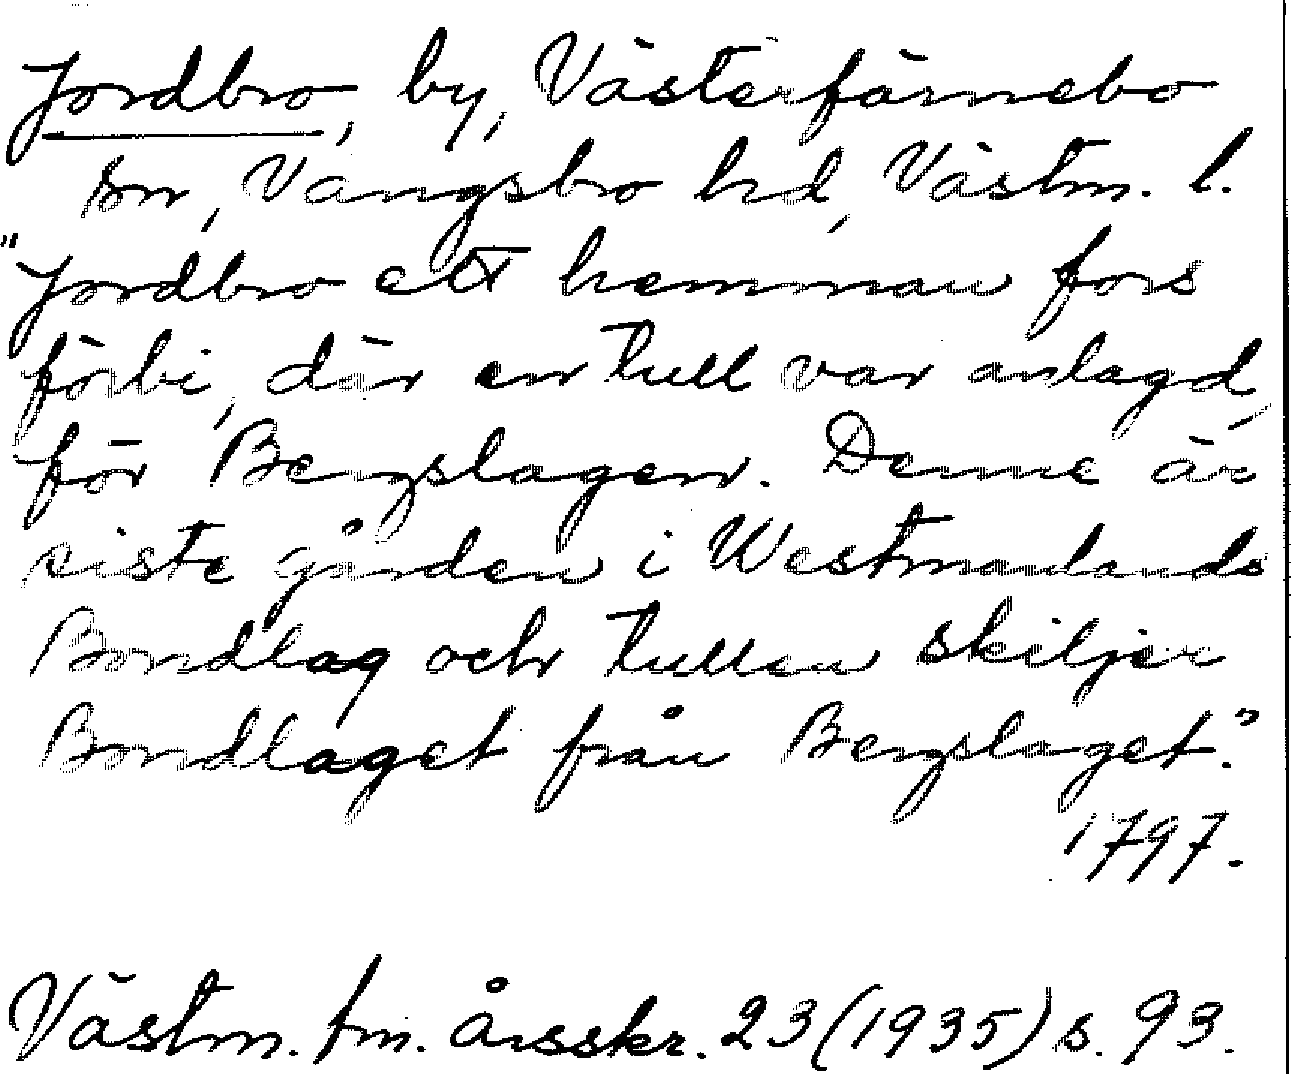 Jordbro, by, Västerfärnebo
sn, Vangsbro hd, Västm. l.
"Jordbro ett hemman fors
förbi, där en tull var anlagd,
för Bergslagen. Denne är
siste gården i Westmanlands
Bondlag och tullen skiljer
Bondlaget från Bergslaget."
1797.
Västm. fm. årsskr. 23 (1935) s. 93.